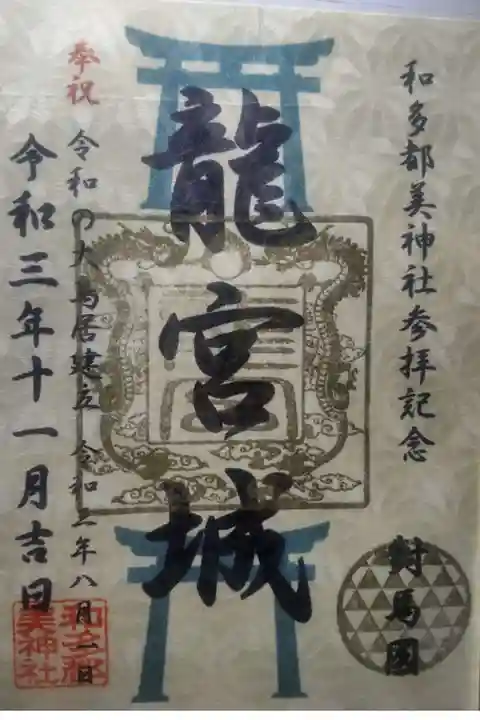 和多都美神社参拝記念
対馬国
龍宮城
奉祝 令和の大鳥居建立 令和三年八月一日
令和三年十一月吉日
和多都
美神社